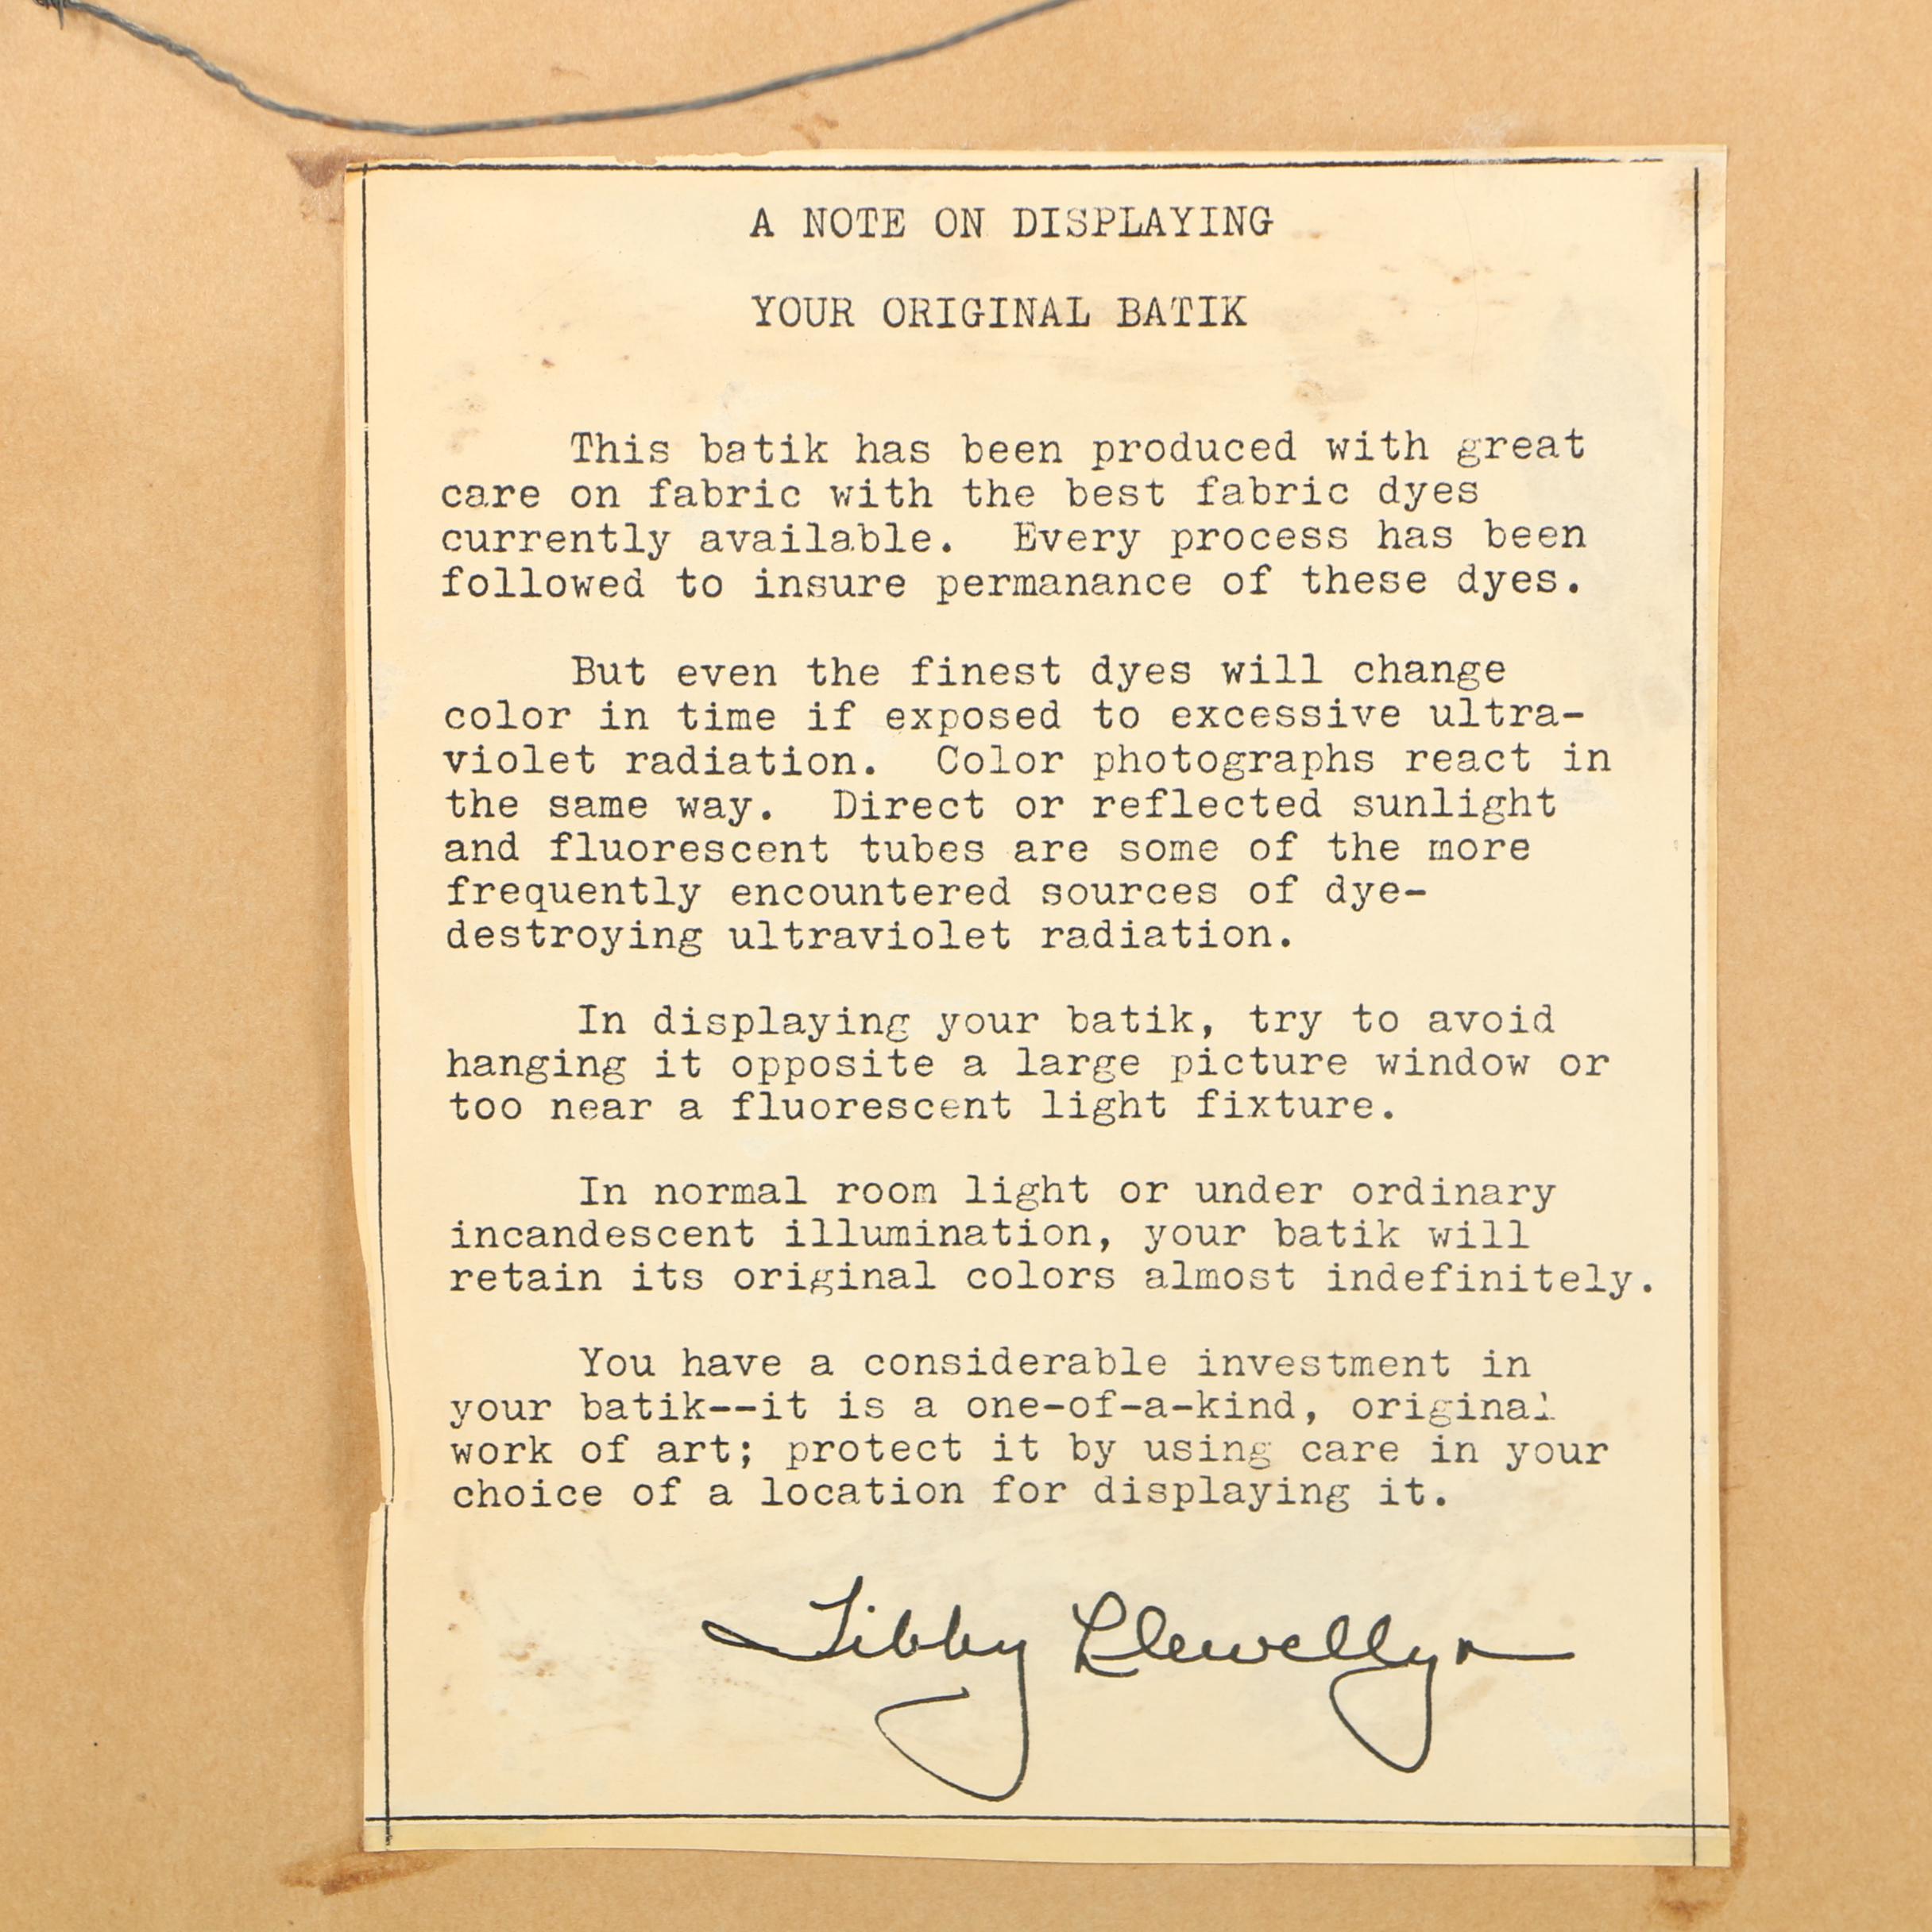 A NOTE ON DISPLAYING
YOUR ORIGINAL BATIK
This batik has been produced with great
care on fabric with the best fabric dyes
currently available. Every process has been
followed to insure permanance of these dyes.
But even the finest dyes will change
color in time if exposed to excessive ultra-
violet radiation. Color photographs react in
the same way. Direct or reflected sunlight
and fluorescent tubes are some of the more
frequently encountered sources of dye-
destroying ultraviolet radiation.
In displaying your batik, try to avoid
hanging it opposite a large picture window or
too near a fluorescent light fixture.
In normal room light or under ordinary
incandescent illumination, your batik will
retain its original colors almost indefinitely.
You have a considerable investment in
your batik--it is a one-of-a-kind, original
work of art; protect it by using care in your
choice of a location for displaying it.
Libby Llewellyn